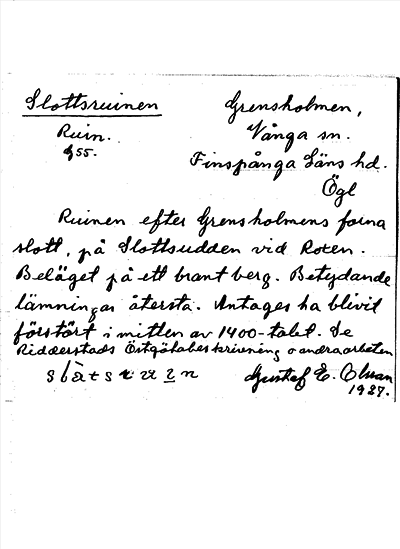 Slottsruinen
Grensholmen,
Ruin.
Vånga sn.
955.
Finspånga Läns hd.
Ögl
Ruinen efter Grensholmens forna
slott, på Slottsudden vid Roxen.
Beläget på ett brant berg. Betydande
lämningar återstå. Antages ha blivit
förstört i mitten av 1400-talet. Se
Ridderstads Östgötabeskrivning o andra arbeten
Gustaf E. Olsson
1927.